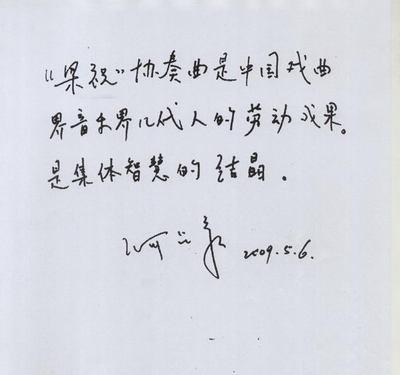 “梁祝”协奏曲是中国戏曲
界音乐界几代人的劳动成果。
是集体智慧的结晶。
何占豪 2009.5.6.